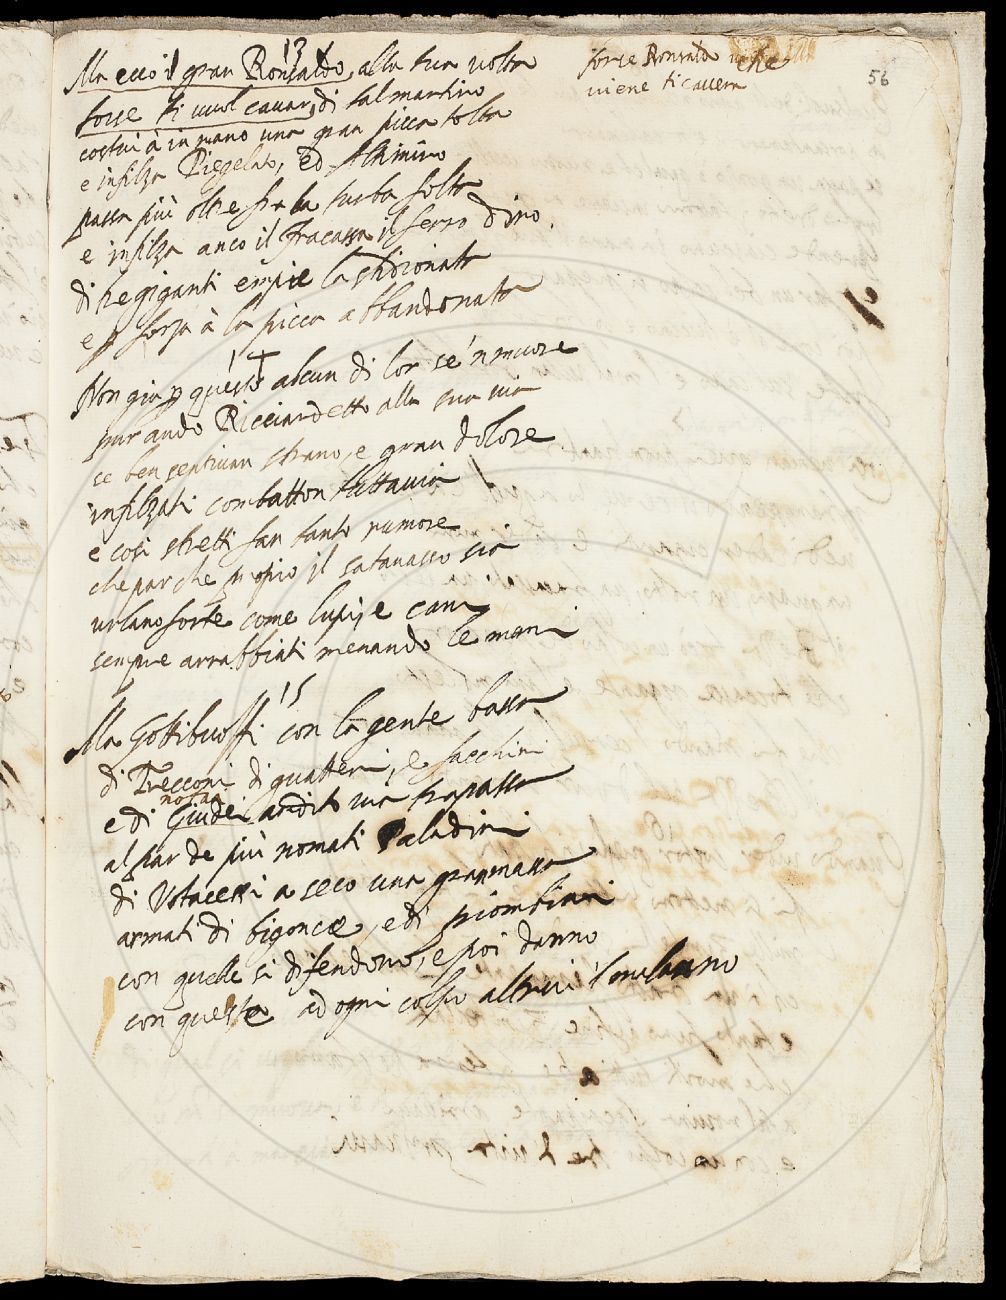 13
Ma ecco il gran Ronsaldo, alla tua volta
forse ti vuol cavar, di tal martino
costui à in mano una gran picca tolta
e infilza Piegelato, ed Altimino
passa più oltre fra la turba folta
e infilza anco il Fracassa, il ferro d'ino.
di tre giganti empie la stidionata
e p forza à la picca abbandonata
14
Non già p questo alcun di lor se'n muore
pur ando Ricciardetto alla sua via
se ben sentivan strano, e gran dolore
infilzati combatton tuttavia
e così stretti fan tanto rumore
che par che propio il satanasso sia
urlano forte come lupi, e cani
sempre arrabbiati menando le mani
15
Ma Gottibuossi con la gente bassa
di Trecconi di guatteri, e facchini
e di Giudei ardito via trapassa
al par de più nomati Paladini
di Votacessi a seco una gran massa
armati di bigonce, e di piombini
con quelle si difendono, e poi danno
con queste ad ogni colpo altrui il malanno
forse Ronsaldo che
viene ti caverà
56